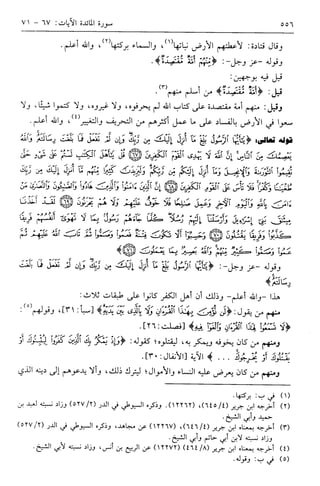 ٥٥٦
سورة المائدة الآيات: ٦٧ - ٧١
وقال قتادة: لأعطتهم الأرض نباتها(١)، والسماء بركتها(٢)، والله أعلم.
وقوله -عز وجل-: ﴿مِّنْهُمْ أُمَّةٌ مُّقْتَصِدَةٌ﴾.
قيل فيه بوجهين:
قيل: ﴿أُمَّةٌ مُّقْتَصِدَةٌ﴾ من أسلم منهم(٣).
وقيل: منهم أمة مقتصدة على كتاب الله لم يحرفوه، ولا غيروه، ولا كتموا شيئًا، ولا
سعوا في الأرض بالفساد على ما عمل أكثرهم من التحريف والتغيير(٤)، والله أعلم.
قوله تعالى: ﴿يَٰٓأَيُّهَا ٱلرَّسُولُ بَلِّغْ مَآ أُنزِلَ إِلَيْكَ مِن رَّبِّكَ وَإِن لَّمْ تَفْعَلْ فَمَا بَلَّغْتَ رِسَالَتَهُۥ وَٱللَّهُ
يَعْصِمُكَ مِنَ ٱلنَّاسِ إِنَّ ٱللَّهَ لَا يَهْدِى ٱلْقَوْمَ ٱلْكَٰفِرِينَ ﴿٦٧﴾ قُلْ يَٰٓأَهْلَ ٱلْكِتَٰبِ لَسْتُمْ عَلَىٰ شَىْءٍ حَتَّىٰ
تُقِيمُوا۟ ٱلتَّوْرَىٰةَ وَٱلْإِنجِيلَ وَمَآ أُنزِلَ إِلَيْكُم مِّن رَّبِّكُمْ وَلَيَزِيدَنَّ كَثِيرًا مِّنْهُم مَّآ أُنزِلَ إِلَيْكَ مِن رَّبِّكَ
طُغْيَٰنًا وَكُفْرًا فَلَا تَأْسَ عَلَى ٱلْقَوْمِ ٱلْكَٰفِرِينَ ﴿٦٨﴾ إِنَّ ٱلَّذِينَ ءَامَنُوا۟ وَٱلَّذِينَ هَادُوا۟ وَٱلصَّٰبِـُٔونَ وَٱلنَّصَٰرَىٰ مَنْ
ءَامَنَ بِٱللَّهِ وَٱلْيَوْمِ ٱلْءَاخِرِ وَعَمِلَ صَٰلِحًا فَلَا خَوْفٌ عَلَيْهِمْ وَلَا هُمْ يَحْزَنُونَ ﴿٦٩﴾ لَقَدْ أَخَذْنَا
مِيثَٰقَ بَنِىٓ إِسْرَٰٓءِيلَ وَأَرْسَلْنَآ إِلَيْهِمْ رُسُلًا كُلَّمَا جَآءَهُمْ رَسُولٌۢ بِمَا لَا تَهْوَىٰٓ أَنفُسُهُمْ فَرِيقًا
كَذَّبُوا۟ وَفَرِيقًا يَقْتُلُونَ ﴿٧٠﴾ وَحَسِبُوٓا۟ أَلَّا تَكُونَ فِتْنَةٌ فَعَمُوا۟ وَصَمُّوا۟ ثُمَّ تَابَ ٱللَّهُ عَلَيْهِمْ ثُمَّ
عَمُوا۟ وَصَمُّوا۟ كَثِيرٌ مِّنْهُمْ وَٱللَّهُ بَصِيرٌۢ بِمَا يَعْمَلُونَ ﴿٧١﴾﴾
وقوله -عز وجل-: ﴿يَٰٓأَيُّهَا ٱلرَّسُولُ بَلِّغْ مَآ أُنزِلَ إِلَيْكَ مِن رَّبِّكَ وَإِن لَّمْ تَفْعَلْ فَمَا بَلَّغْتَ
رِسَالَتَهُۥ﴾
هذا -والله أعلم- وذلك أن أهل الكفر كانوا على طبقات ثلاث:
منهم من يقول: ﴿لَن نُّؤْمِنَ بِهَٰذَا ٱلْقُرْءَانِ وَلَا بِٱلَّذِى بَيْنَ يَدَيْهِ﴾ [سبأ: ٣١]، وقولهم(٥):
﴿لَا تَسْمَعُوا۟ لِهَٰذَا ٱلْقُرْءَانِ وَٱلْغَوْا۟ فِيهِ﴾ [فصلت: ٢٦].
ومنهم من كان يخوفه ويمكر به، ليقتلوه؛ كقوله: ﴿وَإِذْ يَمْكُرُ بِكَ ٱلَّذِينَ كَفَرُوا۟ لِيُثْبِتُوكَ أَوْ
يَقْتُلُوكَ أَوْ يُخْرِجُوكَ ... ﴾ الآية [الأنفال: ٣٠].
ومنهم من كان يعرض عليه النساء والأموال؛ ليترك ذلك، وألا يدعوهم إلى دينه الذي
(١) في ب: بركتها.
(٢) أخرجه ابن جرير (٤/٦٤٥) (١٢٢٦٢)، وذكره السيوطي في الدر (٢/٥٢٧) وزاد نسبته لعبد بن
حميد وأبي الشيخ.
(٣) أخرجه بمعناه ابن جرير (٤/٦٤٦) (١٢٢٦٧) عن مجاهد، وذكره السيوطي في الدر (٢/٥٢٧)
وزاد نسبته لابن أبي حاتم وأبي الشيخ.
(٤) أخرجه بمعناه ابن جرير (٤/٤٦٨) (١٢٢٧٢) عن الربيع بن أنس، وزاد نسبته لأبي الشيخ.
(٥) في ب: وقوله.